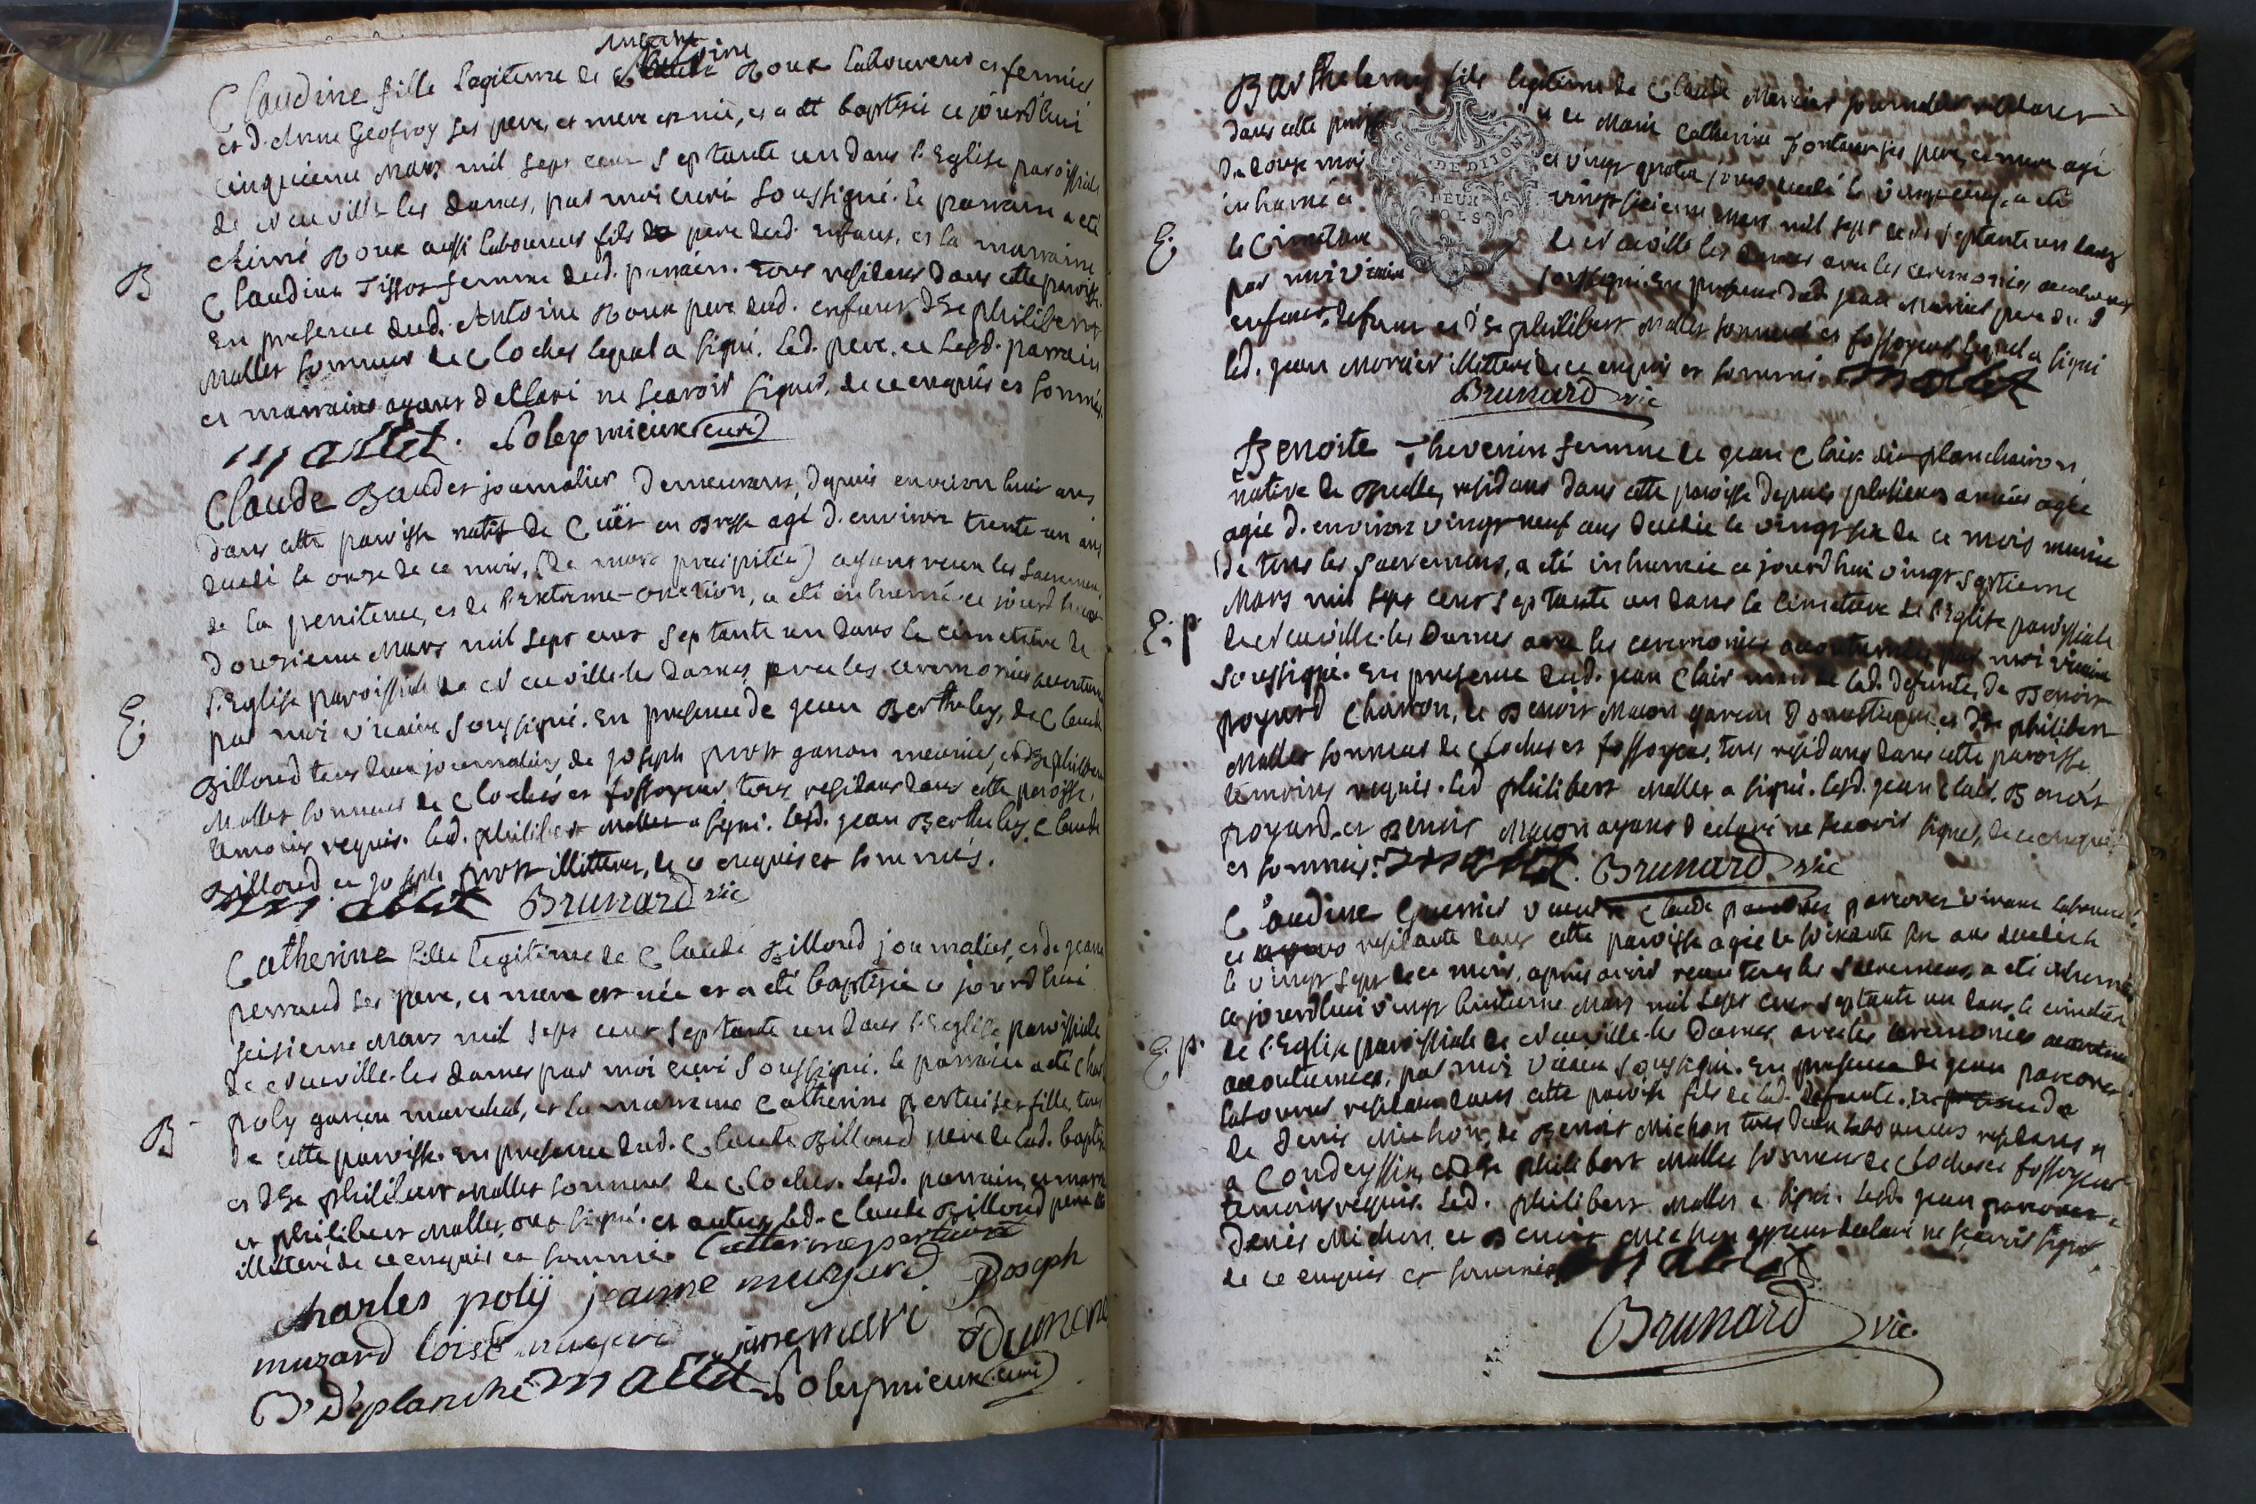 Antoine
Claudine fille legitime de Roux laboureur et fermier
et d'Anne Geofroy ses pere, et mere est née, et a eté baptisée ce jourd'hui
cinquieme Mars mil sept cent septante un dans l'Eglise paroissiale
de Neuville les Dames, par moi curé soussigné. Le parrain a eté
Aimé Roux aussi laboureur fils de pere dud. enfant, et la marraine
B
Claudine Tissot femme dud. parrain. tous residans dans cette paroisse.
En presence dud. Antoine Roux pere dud. enfant d'Se philibert
Mallet sonneur de cloches lequel a signé. Led. pere, et lesd. parrain
et marraine ayant declaré ne scavoir signer, de ce enquis et sommés.
Mallet. Soleymieux curé
Claude Baudet journalier demeurant, depuis environ huit ans
dans cette paroisse natif de Cuët en Bresse agé d'environ trente un ans
decedé le onze de ce mois, (de mort precipitée) ayant recu les sacremens
de la penitence, et de l'extreme-onction, a eté inhumé ce jourd'hui
douzieme Mars mil sept cent septante un dans le cimetiere de
l'Eglise paroissiale de Neuville-les Dames avec les ceremonies accoutum
E.
par moi vicaire soussigné. En presence de jean Bertheley, de Claude
Billoud tous deux journaliers, de joseph prost garcon meunier, et d'Se philibert
Mallet sonneur de cloches et fossoyeur, tous residans dans cette paroisse,
temoins requis. Led. philibert Mallet a signé. Lesd. jean Bertheley, Claude
Billoud, et joseph prost illitterés, de ce enquis et sommés.
Mallet Brunard vic
Catherine fille legitime de Claude Billoud journalier, et de jeanne
perraud ses pere, et mere est née et a eté baptisée ce jourd'hui
seisieme Mars mil sept cent septante un dans l'Eglise paroissiale
de Neuville-les Dames par moi curé soussigné. le parrain a eté Charles
poly garcon marechal, et la marraine Catherine pertuiset fille, tous
B
de cette paroisse. en presence dud. Claude Billoud pere de lad. baptisée
et d'Se philibert Mallet sonneur de cloches. Lesd. parrain, et marraine
et philibert Mallet, ont signé. et led. Claude Billoud pere
illitteré de ce enquis et sommé. Catherine pertuiset
charles polÿ jeanne muzard Joseph
muzard Dumont
D'eplanche Mallet Soleymieux curé
Barthelemy fils legitime de Claude Mercier journalier residant
dans cette paroisse et de Marie Catherine Fontaine ses pere, et mere agé
de douze mois et vingt quatre jours decedé le vingt cinq, a eté
inhumé ce vingt sixieme Mars mil sept cent septante un dans
E.
le Cimetiere de Neuville les Dames avec les ceremonies accoutumées
par moi vicaire soussigné. En presence dud. jean Mercier pere dud
enfant defunt et d'Se philibert Mallet sonneur et fossoyeur lequel a signé
led. jean Mercier illitteré de ce enquis et sommé. Mallet
Brunard vic
Benoite Thevenin femme de jean Clair dit planchairon
native de Bresse, residans dans cette paroisse depuis plusieurs années agée
agée d'environ vingt neuf ans decedée le vingt six de ce mois munie
de tous les sacremens, a eté inhumée ce jourd'hui vingt septieme
Mars mil sept cent septante un dans le cimetiere de l'Eglise paroissiale
E. p.
de Neuville-les Dames avec les ceremonies accoutumées par moi vicaire
soussigné. En presence dud. jean Clair mari de lad. defunte, de Benoit
poyard Charron, de Benoit Macon garcon domestique, et d'Se philibert
Mallet sonneur de cloches et fossoyeur, tous residans dans cette paroisse
temoins requis. led. philibert Mallet a signé. lesd. jean Clair, Benoit
poyard, et Benoit Macon ayans declaré ne scavoir signer, de ce enquis
et sommés. Mallet. Brunard vic
Claudine Grumier veuve Claude parcover vivant laboureur
residante dans cette paroisse agée de soixante six ans decedée
le vingt sept de ce mois, apres avoir recu tous les sacremens, a eté inhumée
ce jourd'hui vingt huitieme Mars mil sept cent septante un dans le cimetiere
E. p.
de l'Eglise paroissiale de Neuville-les Dames avec les ceremonies
accoutumées, par moi vicaire soussigné. En presence de jean parcover
laboureur residant dans cette paroisse fils de lad. defunte.
de Denis Michon, de Benoit Michon tous deux laboureurs residans
a Condeyssiat, et d'Se philibert Mallet sonneur de cloches et fossoyeur
temoins requis. Led. philibert Mallet a signé. Lesd. jean parcover,
Denis Michon, et Benoit Michon ayant declaré ne scavoir signer
de ce enquis et sommés Mallet
Brunard vic.